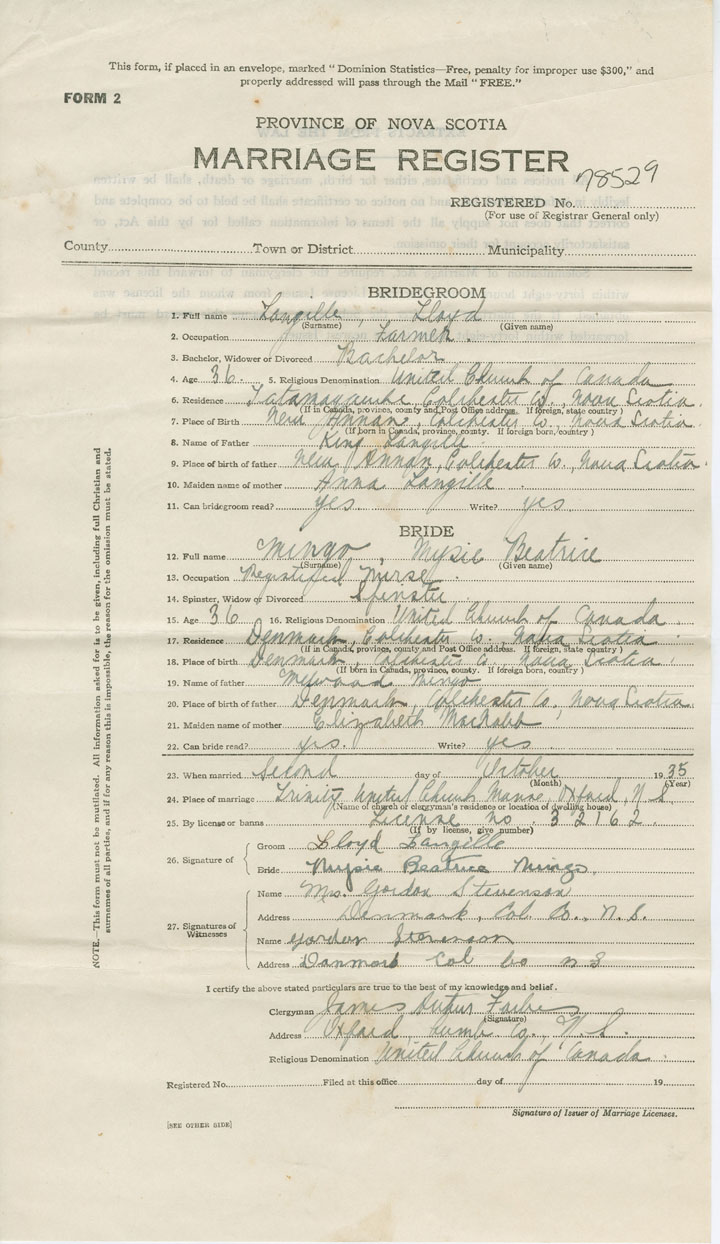 This form, if placed in an envelope, marked "Dominion Statistics—Free, penalty for improper use $300," and
properly addressed will pass through the Mail "FREE."
FORM 2
PROVINCE OF NOVA SCOTIA
MARRIAGE REGISTER
78529
REGISTERED No.
(For use of Registrar General only)
County Town or District Municipality
BRIDEGROOM
1. Full name Langille, Lloyd
(Surname) (Given name)
2. Occupation Farmer.
3. Bachelor, Widower or Divorced Bachelor
4. Age 36. 5. Religious Denomination United Church of Canada
6. Residence Tatamagouche Colchester Co., Nova Scotia
(If in Canada, province, county and Post Office address. If foreign, state country)
7. Place of Birth New Annan, Colchester Co., Nova Scotia.
(If born in Canada, province, county. If foreign born, country)
8. Name of Father King Langille
9. Place of birth of father New Annan, Colchester Co., Nova Scotia.
10. Maiden name of mother Anna Langille
11. Can bridegroom read? yes. Write? yes
BRIDE
12. Full name Mingo, Mysie Beatrice
(Surname) (Given name)
13. Occupation Registered Nurse.
14. Spinster, Widow or Divorced Spinster
15. Age 36 16. Religious Denomination United Church of Canada
17. Residence Denmark, Colchester Co., Nova Scotia
(If in Canada, province, county and Post Office address. If foreign, state country)
18. Place of birth Denmark, Colchester Co. Nova Scotia.
(If born in Canada, province, county. If foreign born, country)
19. Name of father Mingo
20. Place of birth of father Denmark, Colchester Co. Nova Scotia.
21. Maiden name of mother Elizabeth
22. Can bride read? yes. Write? yes
23. When married Second day of October 1935
(Month) (Year)
24. Place of marriage Trinity United Church Manse, Oxford, N.S.
(Name of church or clergyman's residence or location of dwelling house)
25. By license or banns License no. 32162.
(If by license, give number)
26. Signature of
Groom Lloyd Langille
Bride Mysie Beatrice Mingo.
27. Signatures of Witnesses
Name Mrs. Gordon Stevenson
Address Denmark, Col. Co., N.S.
Name Gordon Stevenson
Address Danmark Col Co NS
I certify the above stated particulars are true to the best of my knowledge and belief.
Clergyman James Arthur Forbes
(Signature)
Address Oxford, Cumb. Co., N.S.
Religious Denomination United Church of Canada.
Registered No. Filed at this office day of 19
Signature of Issuer of Marriage Licenses.
[SEE OTHER SIDE]
NOTE.—This form must not be mutilated. All information asked for is to be given, including full Christian and
surnames of all parties, and if for any reason this is impossible, the reason for the omission must be stated.